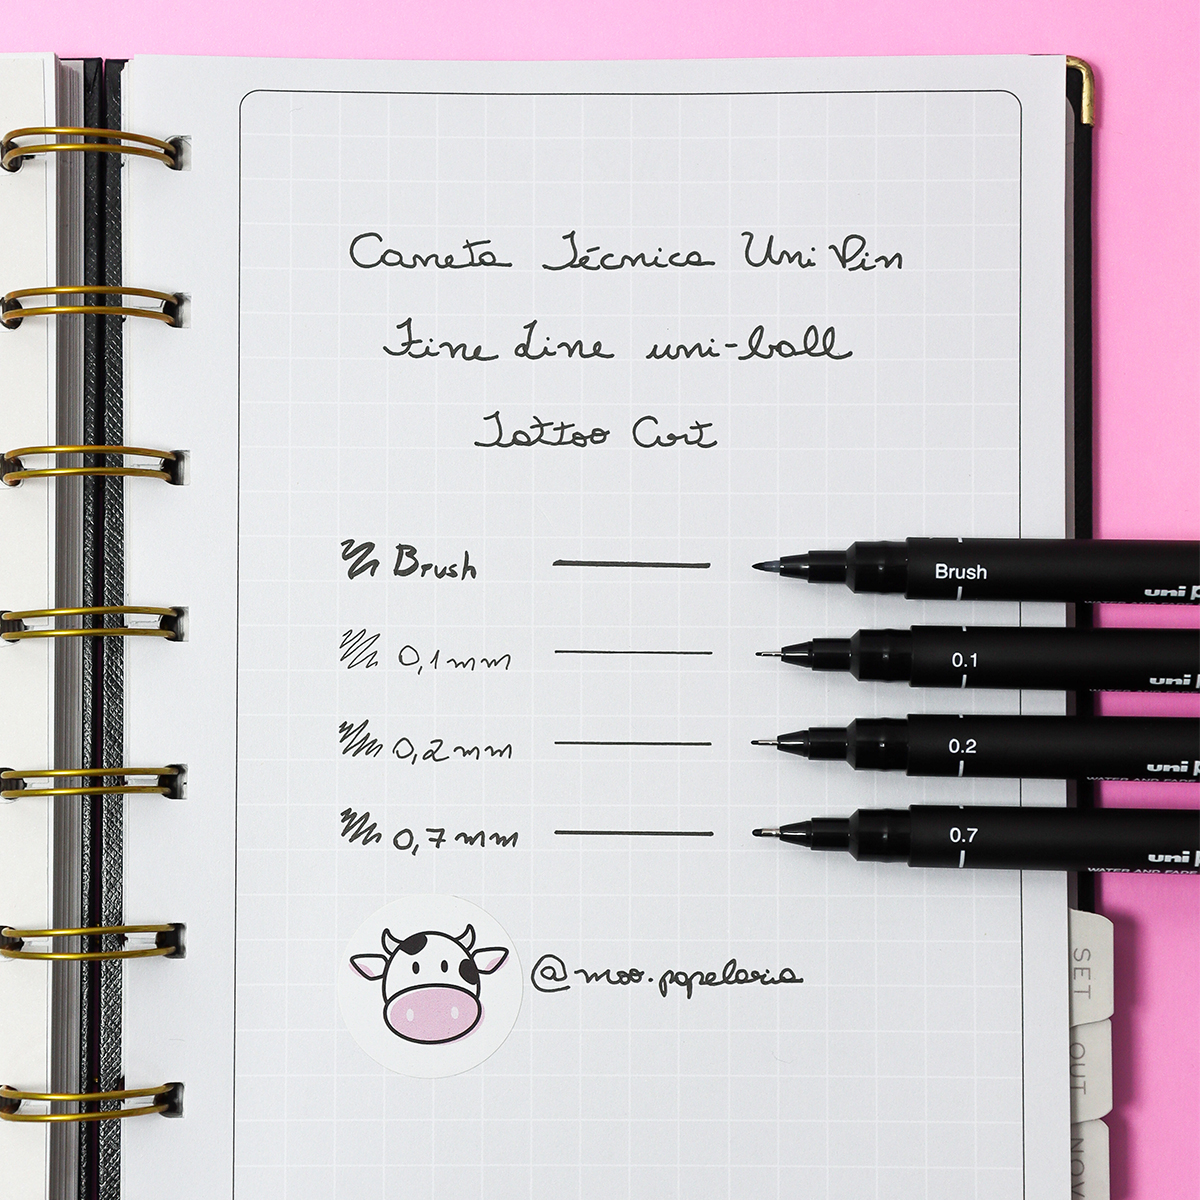 Caneta Técnica Uni Pin
Fine Line uni-ball
Tattoo Art
Brush
Brush
uni p
WATER AND FADE
0,1mm
0.1
uni p
0,2mm
0.2
uni p
WATER AND FADE
0,7mm
0.7
uni p
WATER AND FADE
@moo.papelaria
SET
OUT
NOV